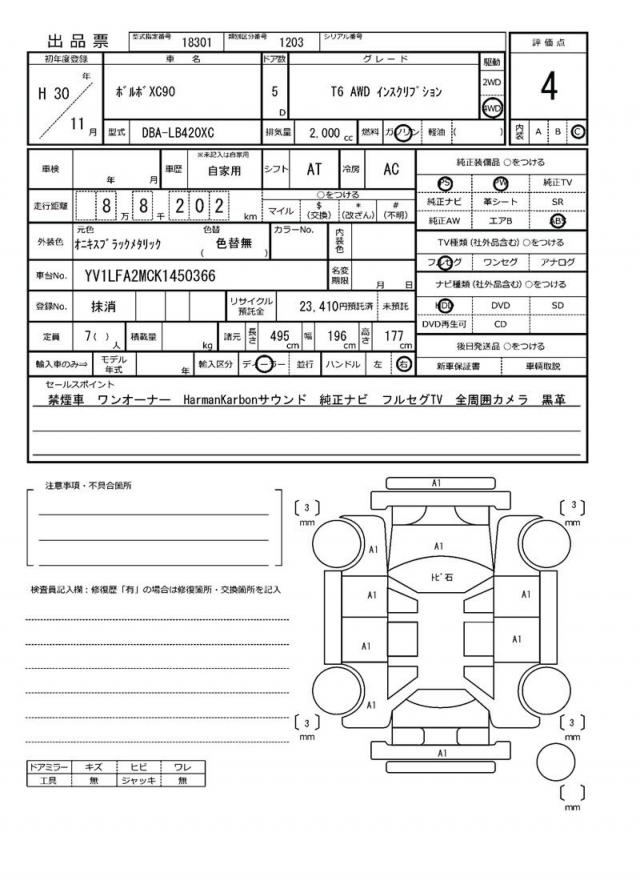 出品票 型式指定番号 18301 類別区分番号 1203 シリアル番号
初年度登録 車名 ドア数 グレード 駆動 評価点
H 30 年 11 月 ﾎﾞﾙﾎﾞXC90 5 D T6 AWD インスクリプション 2WD 4WD 4
型式 DBA-LB420XC 排気量 2,000 cc 燃料 ガソリン 軽油 ( ) 内装 A B C
車検 年 月 車歴 ※未記入は自家用 自家用 シフト AT 冷房 AC 純正装備品 ○をつける
PS PW 純正TV
走行距離 8 万 8 千 2 0 2 km ○をつける 純正ナビ 革シート SR
マイル $ (交換) * (改ざん) # (不明) 純正AW エアB ABS
外装色 元色 オニキスブラックメタリック 色替 ( 色替無 ) カラーNo. 内装色 TV種類 (社外品含む) ○をつける
フルセグ ワンセグ アナログ
車台No. YV1LFA2MCK1450366 名変期限 月 日 ナビ種類 (社外品含む) ○をつける
登録No. 抹消 リサイクル預託金 23,410円預託済 未預託 HDD DVD SD
DVD再生可 CD
定員 7( ) 人 積載量 kg 諸元 長さ 495 cm 幅 196 cm 高さ 177 cm 後日発送品 ○をつける
輸入車のみ⇒ モデル年式 年 輸入区分 ディーラー 並行 ハンドル 左 右 新車保証書 車輌取説
セールスポイント
禁煙車 ワンオーナー HarmanKarbonサウンド 純正ナビ フルセグTV 全周囲カメラ 黒革
注意事項・不具合箇所
検査員記入欄:修復歴「有」の場合は修復箇所・交換箇所を記入
A1
3 mm
3 mm
A1
A1
ﾄﾋﾞ石
A1
A1
A1
A1
A1
3 mm
3 mm
A1
mm
ドアミラー キズ ヒビ ワレ
工具 無 ジャッキ 無